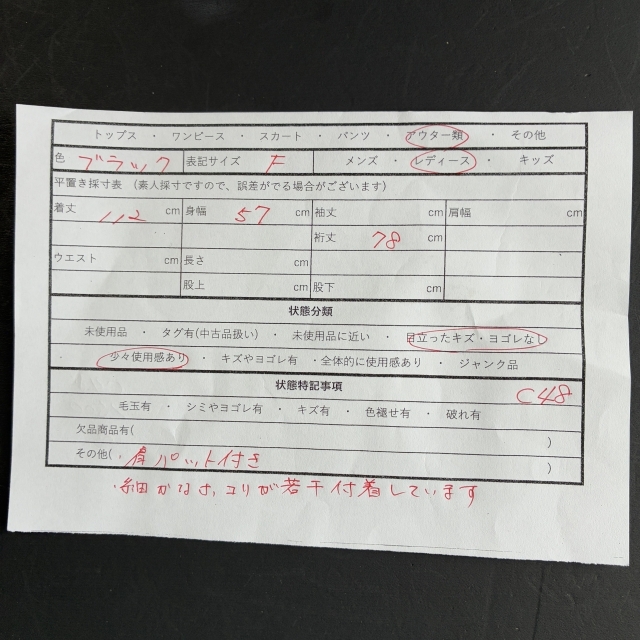 トップス ・ ワンピース ・ スカート ・ パンツ ・ アウター類 ・ その他
色 ブラック 表記サイズ F メンズ ・ レディース ・ キッズ
平置き採寸表 (素人採寸ですので、誤差がでる場合がございます)
着丈 112 cm 身幅 57 cm 袖丈 cm 肩幅 cm
裄丈 78 cm
ウエスト cm 長さ cm
股上 cm 股下 cm
状態分類
未使用品 ・ タグ有(中古品扱い) ・ 未使用品に近い ・ 目立ったキズ・ヨゴレなし
・ 少々使用感あり ・ キズやヨゴレ有 ・全体的に使用感あり ・ ジャンク品
状態特記事項 C48
毛玉有 ・ シミやヨゴレ有 ・ キズ有 ・ 色褪せ有 ・ 破れ有
欠品商品有( )
その他( ・肩パット付き )
・細かなホコリが若干付着しています